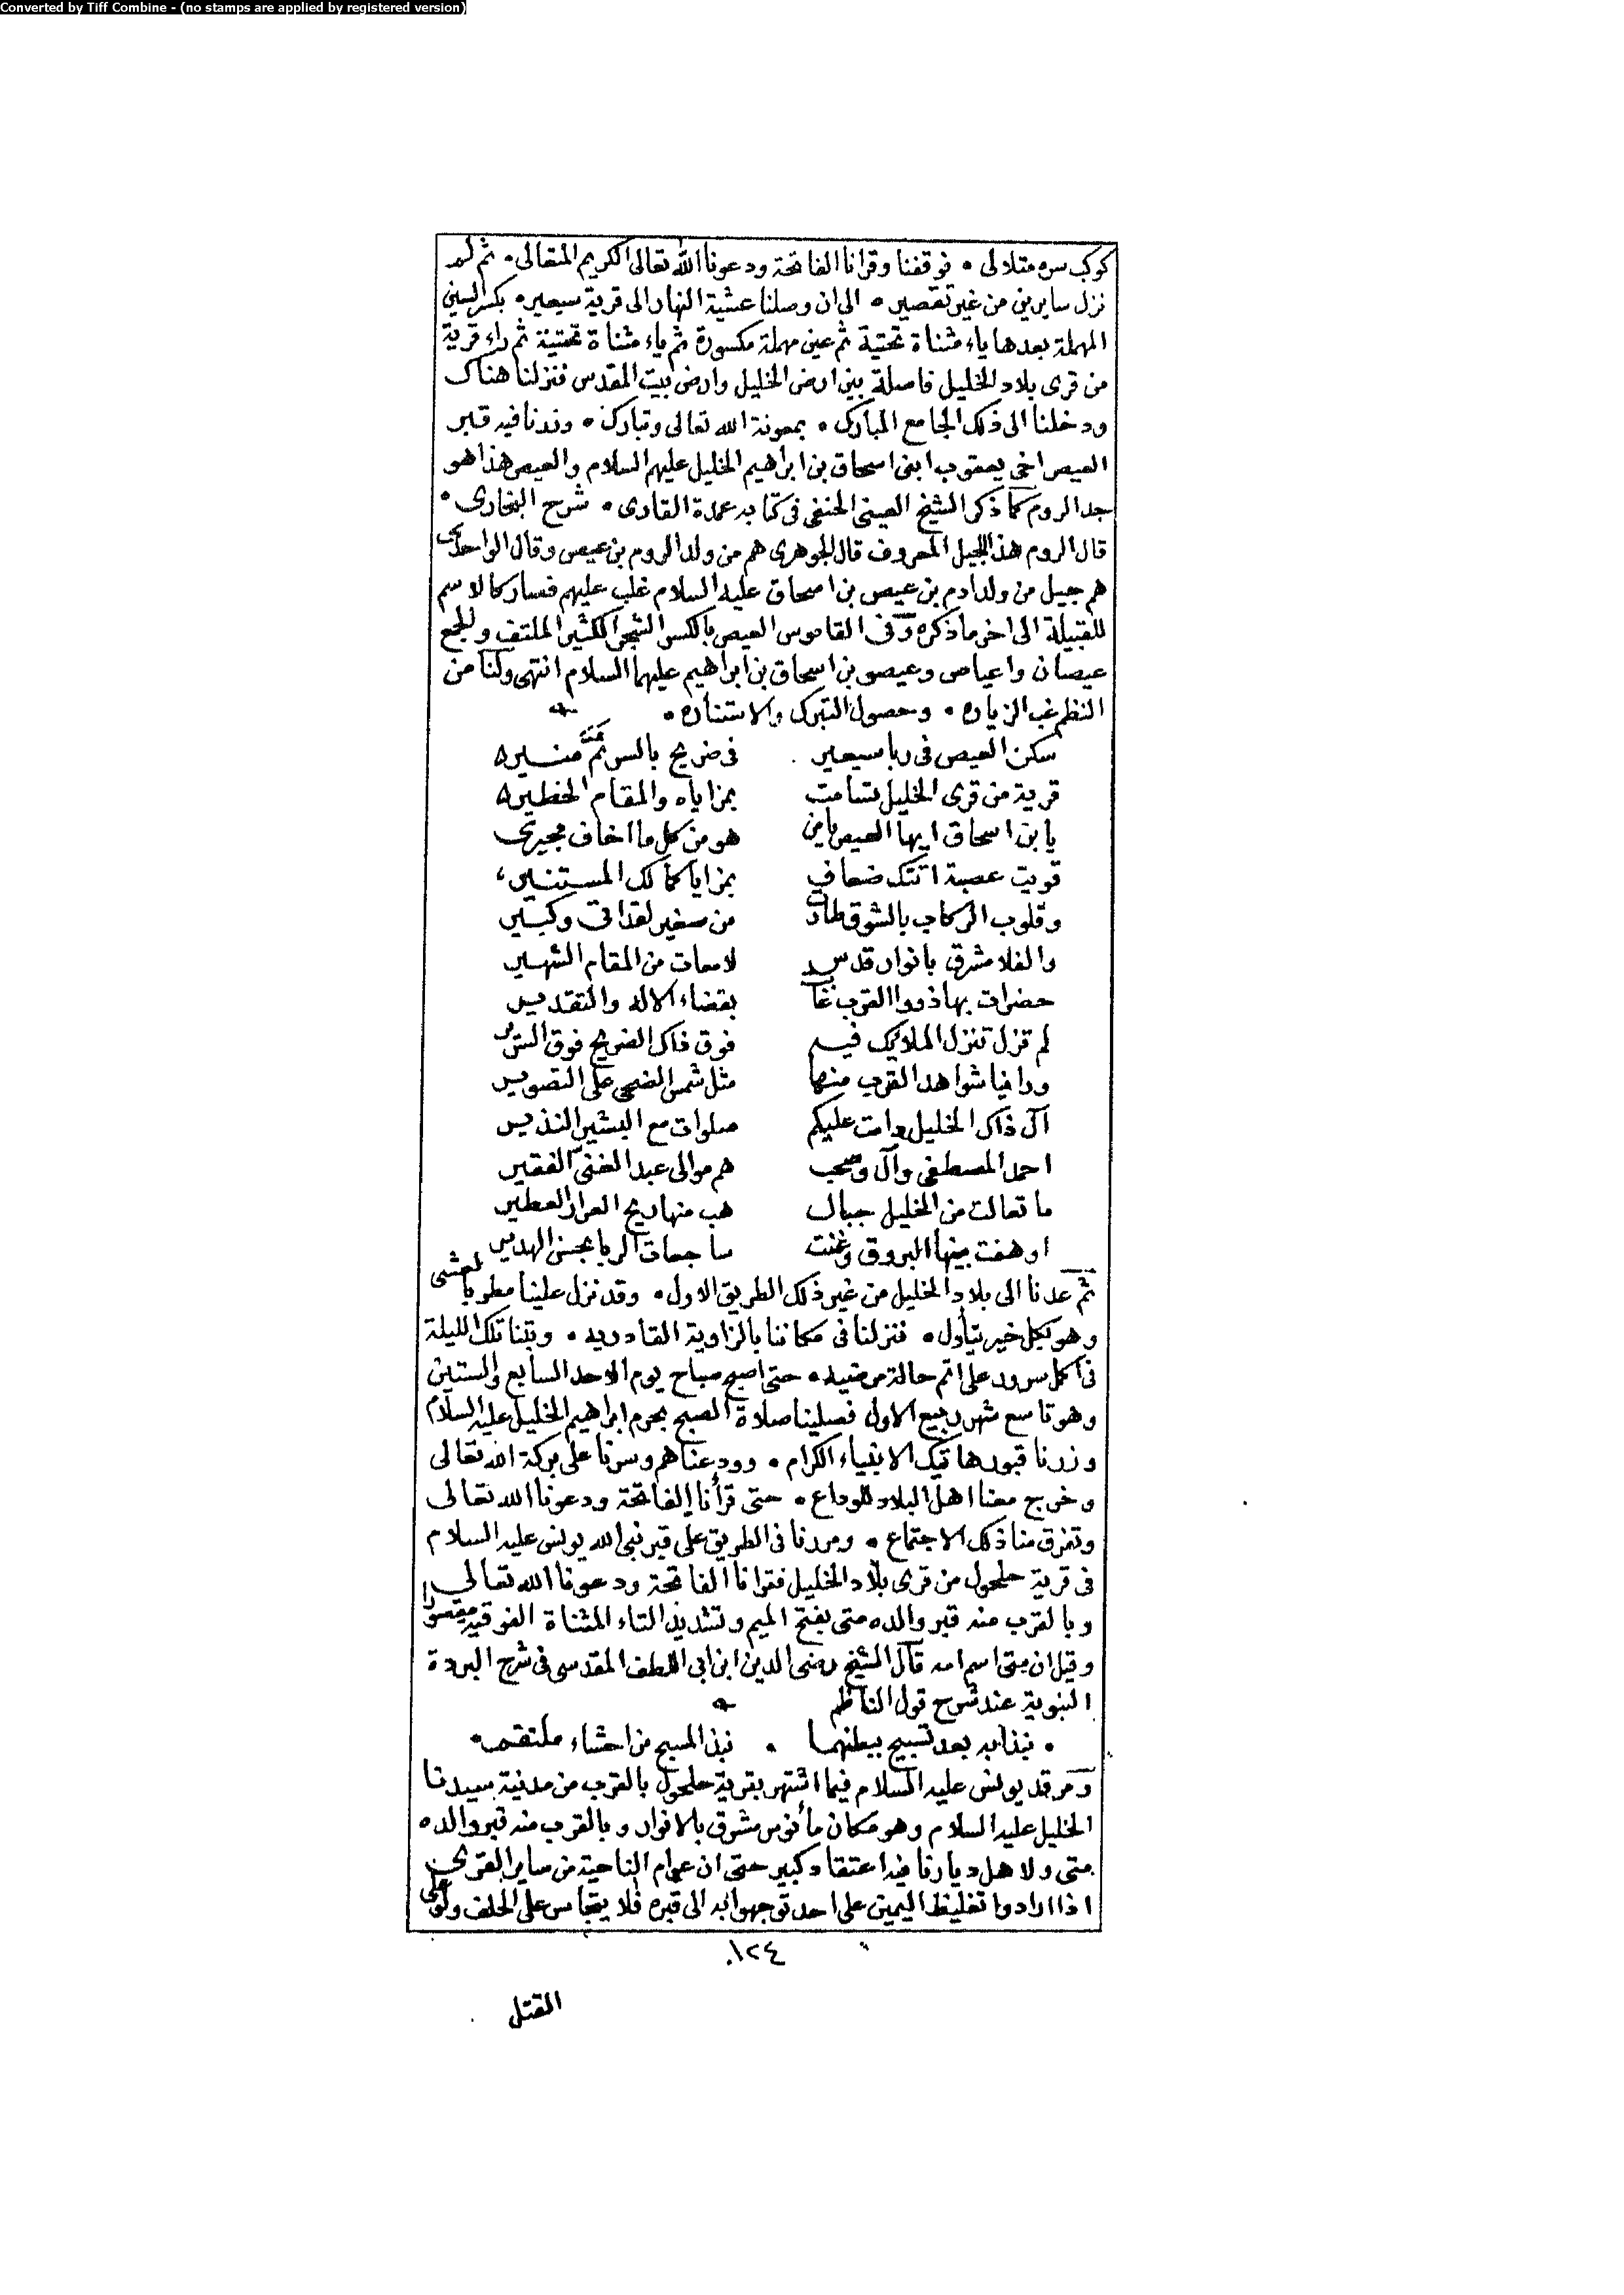 Converted by Tiff Combine - (no stamps are applied by registered version)
كوكب سره متلالى • فوقفنا وقرانا الفاتحة ودعونا الله تعالى الكريم المتعالى • ثم لم
نزل سايرين من غير تقصير • الى ان وصلنا عشية النهار الى قرية سيعير • بكسر السين
المهملة بعدها ياء مثناة تحتية ثم عين مهملة مكسورة ثم ياء مثناة تحتية ثم راء قرية
من قرى بلاد الخليل فاصلة بين ارض الخليل وارض بيت المقدس فنزلنا هناك
ودخلنا الى ذلك الجامع المبارك • بمعونة الله تعالى وتبارك • وزرنا فيه قبر
العيص اخى يعقوب ابنى اسحاق بن ابراهيم الخليل عليهم السلام والعيص هذا هو
جد الروم كما ذكر الشيخ العينى الحنفى فى كتابه عمدة القارى • شرح البخارى •
قال الروم هذا الجيل المعروف قال الجوهرى هم من ولد الروم بن عيص وقال الواحدى
هم جيل من ولد ارم بن عيص بن اسحاق عليه السلام غلب عليهم فصار كالاسم
للقبيلة الى اخر ما ذكره وفى القاموس العيص بالكسر الشجر الكثير الملتف والجمع
عيصان واعياص وعيصو بن اسحاق بن ابراهيم عليهما السلام انتهى ولنا من
النظم غب الزياره • وحصول التبرك والاستناره •
سكن العيص فى ربا سيعير فى ضريح بالسر ثم منير
قرية من قرى الخليل تسامت بمزاياه والمقام الخطير
يا بن اسحاق ايها العيص يا من هو من كل ما اخاف مجيرى
قويت عصبة اتتك ضعاف بمزايا كمالك المستنير
وقلوب الركاب بالشوق طارت من صغير لقد اتى وكبير
والفلا مشرق بانوار قدس لامعات من المقام الشهير
حضرات بها ذووا القرب غابت بقضاء الاله والتقدير
لم تزل تنزل الملائك فيه فوق ذاك الضريح فوق السرير
وراينا شواهد القرب منها مثل شمس الضحى على التصوير
آل ذاك الخليل دامت عليكم صلوات مع البشير النذير
احمد المصطفى وآل وصحب هم موالى عبد الغنى الفقير
ما تعالت من الخليل جبال هب منها ريح العرار العطير
او هفت بينها البروق وغنت ساجعات الربا بحسن الهدير
ثم عدنا الى بلاد الخليل من غير ذلك الطريق الاول • وقد نزل علينا مطر بالعشى
وهو بكل خير يتأول • فنزلنا فى مكاننا بالزاوية القادريه • وبتنا تلك الليلة
فى اكمل سرور على اتم حالة مرضيه • حتى اصبح صباح يوم الاحد السابع والستين
وهو تاسع شهر ربيع الاول فصلينا صلاة الصبح بحرم ابراهيم الخليل عليه السلام
وزرنا قبور هاتيك الانبياء الكرام • وودعناهم وسرنا على بركة الله تعالى
وخرج معنا اهل البلاد للوداع • حتى قرأنا الفاتحة ودعونا الله تعالى
وتفرق منا ذلك الاجتماع • ومررنا فى الطريق على قبر نبى الله يونس عليه السلام
فى قرية حلحول من قرى بلاد الخليل فقرانا الفاتحة ودعونا الله تعالى
وبالقرب منه قبر والده متى بفتح الميم وتشديد التاء المثناة الفوقيه مقصورا
وقيل ان متى اسم امه قال الشيخ رضى الدين ابن ابى اللطف المقدسى فى شرح البردة
النبوية عند شرح قول الناظم
• نبذا به بعد تسبيح ببطنهما • نبذ المسبح من احشاء ملتقم •
ومرقد يونس عليه السلام فيما اشتهر بقرية حلحول بالقرب من مدينة سيدنا
الخليل عليه السلام وهو مكان مأنوس مشرق بالانوار وبالقرب منه قبر والده
متى ولاهل ديارنا فيه اعتقاد كبير حتى ان عوام الناحية من ساير القرى
اذا ارادوا تغليظ اليمين على احد توجهوا به الى قبره فلا يتجاسر على الحلف ولو على
١٢٤
القتل